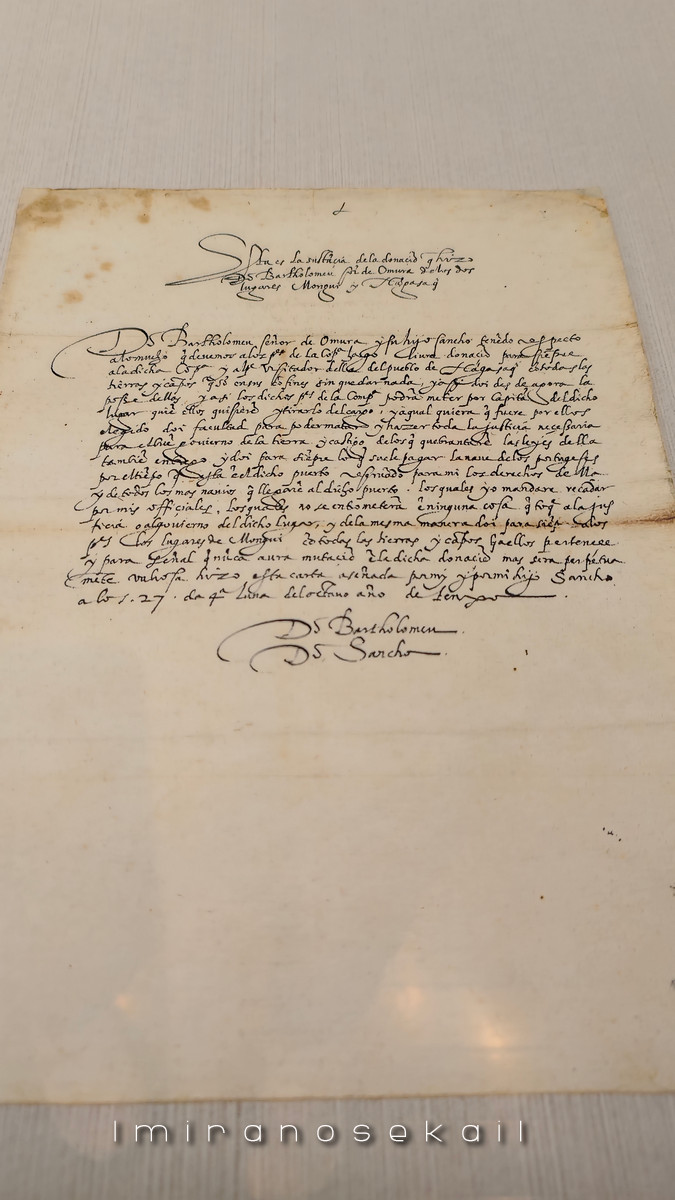 Esta es la sustācia de la donaciō q̄ hizo
Dō Bartholomeu sr̄ de Omura de los dos
lugares Mongui y
Dō Bartholomeu señor de Omura y su hijo Sancho teniēdo respecto
a lo mucho q̄ devemos a los pes de la Cōpa hago libre donaciō para siēpre
a la dicha Cōpa y al pe Visitador della del pueblo de cō todas las
tierras y cāpos q̄ sin quedar nada, y assi doi desde agora la
posse dellos, y assi los dichos pes de la Compa podrā meter por Capitā del dicho
lugar quiē ellos quisierē y tirarlo del cargo, y a qual quiera q̄ fuere por ellos
elegido doi facultad para poder matar y hazer toda la justicia necessaria
para el buē govierno de la tierra y castigo de los q̄ quebrantarē las leyes della
tambiē y doi para siēpre lo q̄ suele pagar la nave de los portugeses
por el tiēpo q̄ ēl dicho puerto para mi los derechos de Ma
y de todos los mas navios q̄ llegarē al dicho puerto. los quales yo mandare recadar
por mis officiales, los quales no se entrometerā ē ninguna cosa q̄ toq̄ a la jus
ticia o al governo del dicho lugar, y de la mesma manera doi para siēp̄ a los
pes los lugares de Mongui cō todas las tierras y cāpos q̄ a ellos pertenece
y para señal q̄ nūca avra mutaciō ē la dicha donaciō mas sera perpetua
mēte hizo esta carta asēñada por mi y por mi hijo Sancho
a los 27. da 4a Luna del octavo año de
Dō Bartholomeu.
Dō Sancho.
Imiranosekail